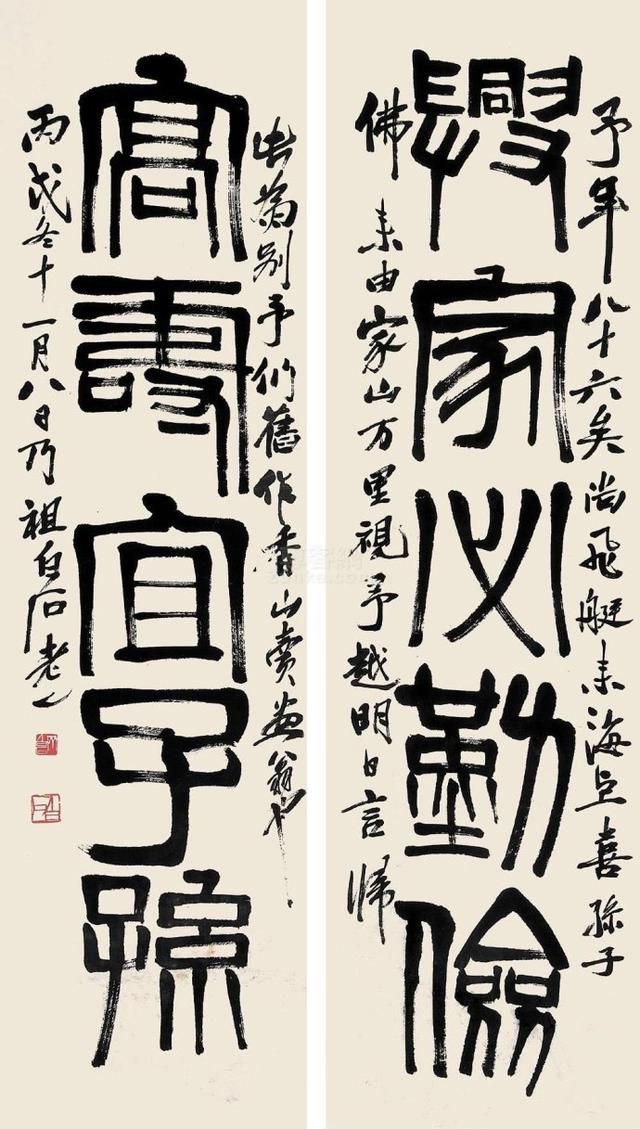 予年八十六矣尚飛艇来海上喜孫子
興家必勤儉
佛来由家山万里視予越明日言歸
此為别予仍舊作香山賣畫翁也
高壽宜子孫
丙戌冬十一月八日乃祖白石老人